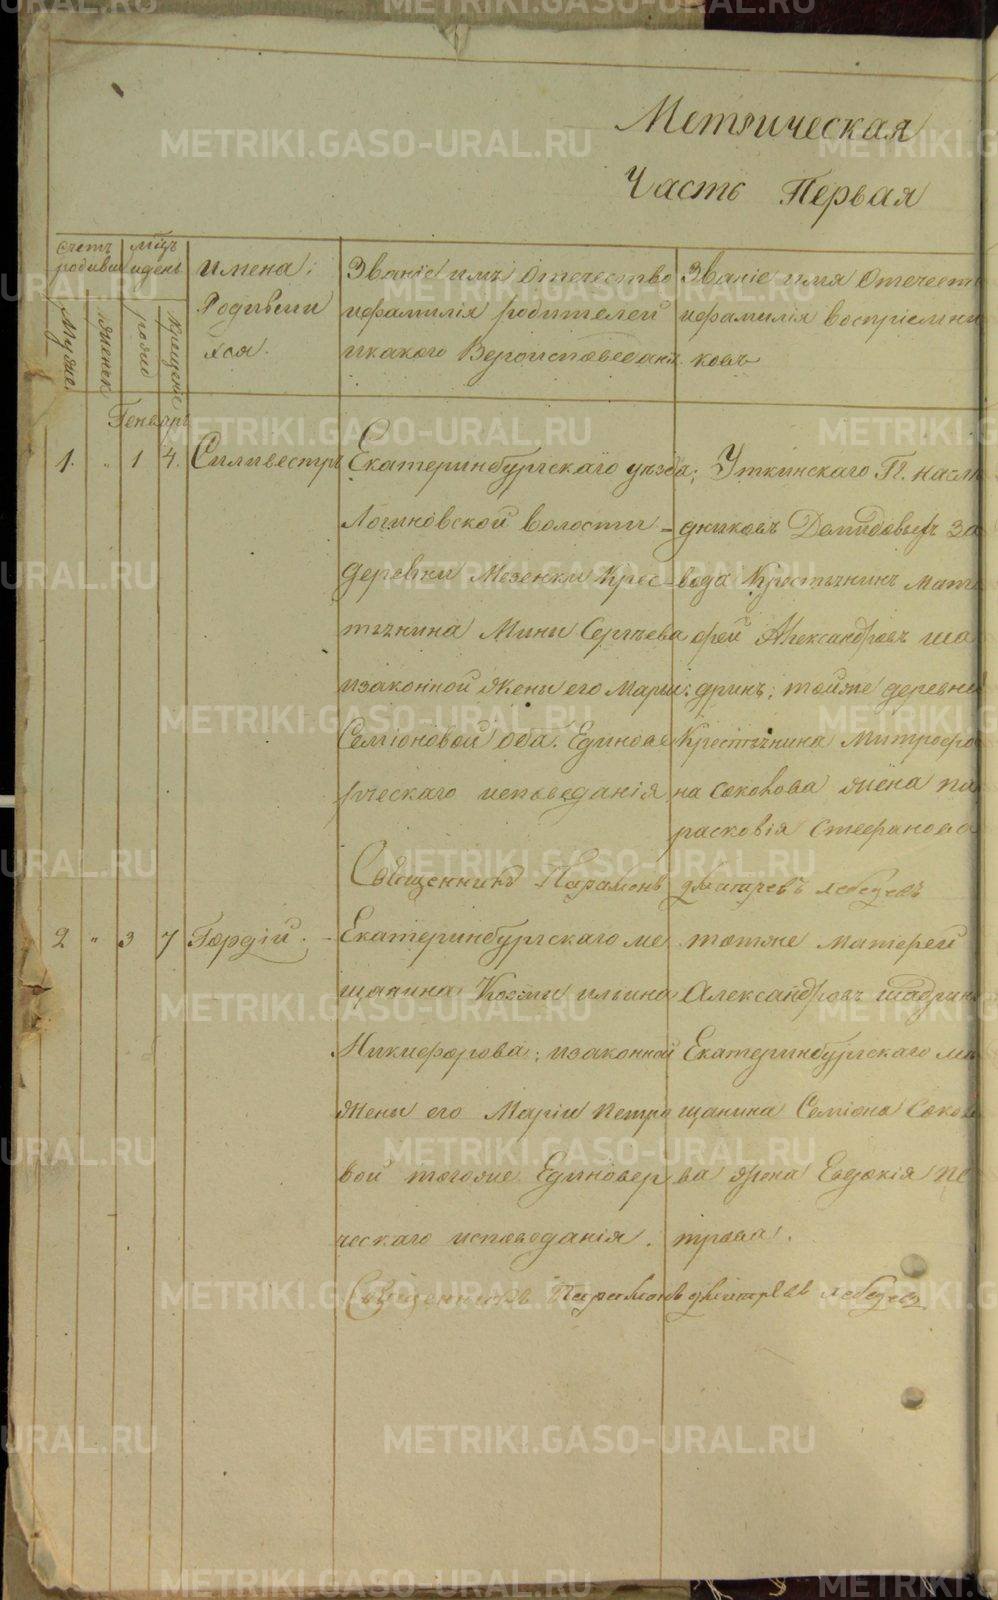 Метрическая
Часть Первая
Счетъ родивши
Мцъ и день
Имена Родившихся.
Званіе имъ Отечество
ифамилія родителей
икакого Вероисповедан.
Званіе имя Отечест
ифамилія восприемни
ковъ
Мужес.
женск
рожд
крещенiе
Генварь
1. " 1 4. Силивестръ
Екатеринбургскаго уезда,
Логиновской волости
деревни Мезенки Крес-
тьянина Мины Сергѣева
изаконной жены его Марии
Семіоновой оба. Единове
рческаго исповеданія
Уткинскаго П. насле
дниковъ Демидовыхъ За
вода Крестьянинъ Мат
фей Александровъ ша
дринъ, тойже деревни
Крестьянина Митрофа
на Соколова жена па
расковія Стефанова
Священникъ Парамонъ дмитревъ лебедевъ
2 " 3 7 Гордій.
Екатеринбургскаго ме
щанина Козмы ильина
Никифорова, изаконной
жены его Маріи петро
вой тогоже Единовер
ческаго исповеданія.
тотже Матфей
Александровъ шадрин
Екатеринбургскаго ме
щанина Семіона Соколо
ва жена Евдокія пе
трова.
Священникъ Парамонъ дмитревъ лебедев
METRIKI.GASO-URAL.RU